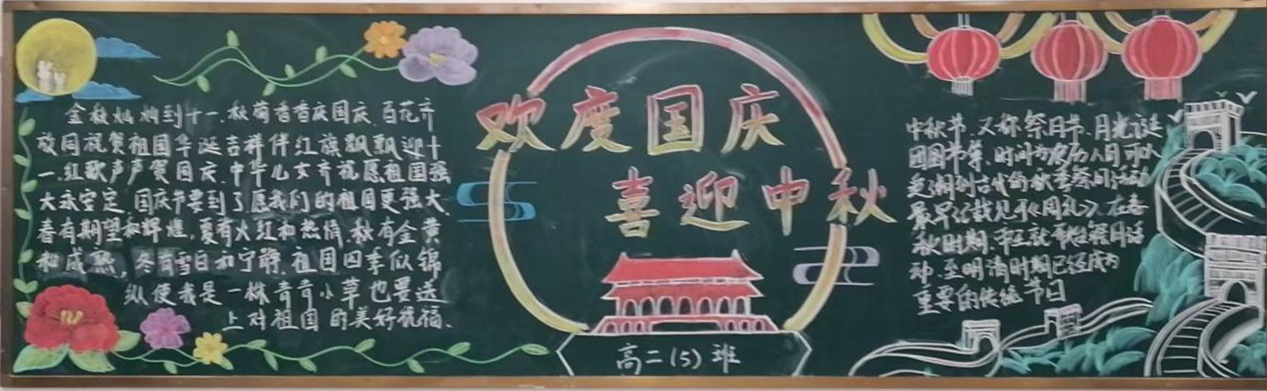 金秋灿灿到十一.秋菊香香庆国庆.百花齐
放同祝贺祖国华诞吉祥伴红旗飘飘迎十
一.红歌声声贺国庆.中华儿女齐祝愿祖国强
大永安定.国庆节要到了愿我们的祖国更强大.
春有期望和辉煌,夏有火红和热情.秋有金黄
和成熟,冬有雪白和宁静.祖国四季似锦
纵使我是一株青青小草也要送
上对祖国的美好祝福.
欢度国庆
喜迎中秋
高二(5)班
中秋节.又称祭月节.月光诞
团圆节等.时间为农历八月可以
追溯到古代的秋季祭月活动
最早记载见于《周礼》.在春
秋时期.帝王就开始祭月活
动.至明清时期已经成为
重要的传统节日